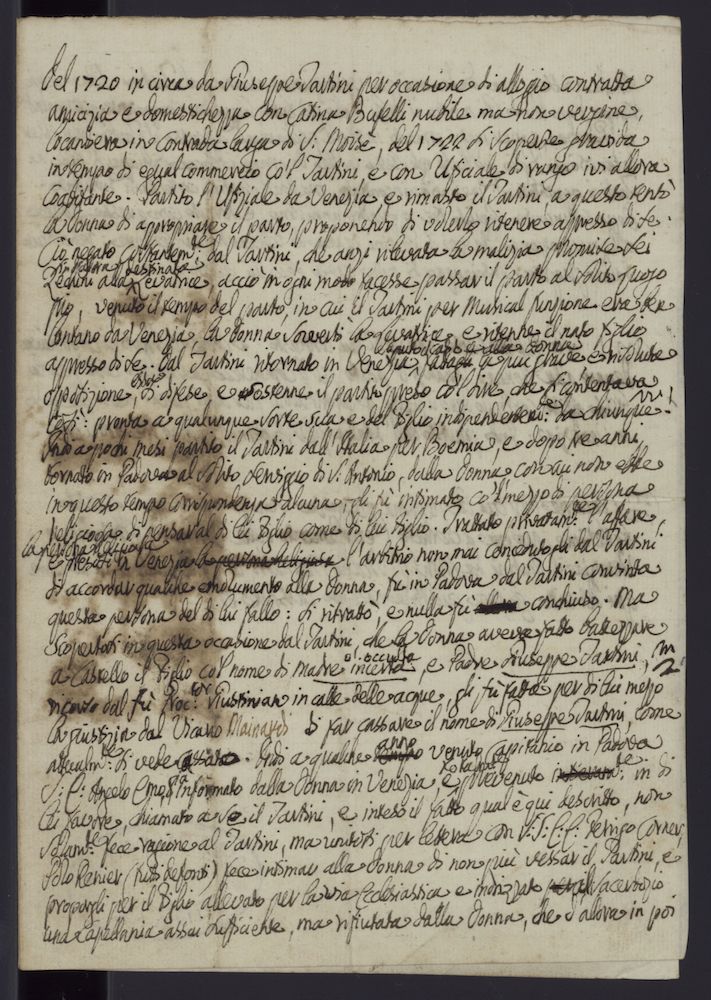 Del 1720 in circa da Giuseppe Tartini per occasione di allogio contratta
amicizia e domestichezza con Catina Buselli nubile ma non vergine,
locandiera in Contrada larga di S: Moisè, del 1722 si scoperse gravida
in tempo di egual commercio co'l Tartini, e con Ufficiale di rango ivi allora
coabitante. Partito l'Uffiziale da Venezia, e rimasto il Tartini, a questo tentò
la donna di appropriare il parto, proponendo di volerlo ritenere appresso di se.
Ciò negato costantem:te dal Tartini, che anzi rilevata la malizia promise sei
in Padova destinata
Zechini alla levatrice, acciò in ogni modo facesse passar il parto al solito luogo
pio, venuto il tempo del parto, in cui il Tartini per Musical funzione era
lontano da Venezia, la donna sovvertì la levatrice, e ritenne il nato figlio
appresso di se. Dal Tartini ritornato in Venezia, alla donna la più grave e risoluta
opposizione, si difese, e sostenne il partito preso co'l dire, che si contentava
così: pronta a qualunque sorte sua e del figlio independentem:te da chiunque.
Indi a pochi mesi partito il Tartini dall'Italia per Boemia, e dopo tre anni
tornato in Padova al solito servigio di S: Antonio, dalla donna con cui non ebbe
in questo tempo corrispondenza alcuna, gli fù intimato co'l mezzo di persona
religiosa di pensar al di lei figlio come di lui figlio. Trattato privatam:te l'affare,
la persona religiosa
e in Venezia la persona religiosa l'arbitrio non mai concedutogli dal Tartini
di accordar qualche emolumento alla donna, fù in Padova dal Tartini convinta
questa persona del di lui fallo: si ritrattò, e nulla fù conchiuso. Ma
scopertosi in questa occasione dal Tartini, che la donna aveva fatto battezzare
o' occulta
a Castello il figlio co'l nome di madre incerta, e Padre Giuseppe Tartini,
ricorso dal fù Proc:tor Giustinian in calle delle acque, gli fù fatta per di lui mezzo
la giustizia dal Vicario Mainardi di far cassare il nome di Giuseppe Tartini, come
attualm:te si vede cassato. Indi a qualche anno venuto Capitanio in Padova
S: E: Angelo Emo, informato dalla donna in Venezia, e prevenuto in di
lei favore, chiamato a se il Tartini, e inteso il fatto qual è qui descritto, non
solam:te fece ragione al Tartini, ma unitosi per lettera con S: E: E: Corner,
Polo Renier, (tutti defonti) fece intimar alla donna di non più vessar il Tartini, e
proporgli per il figlio allevato per la via Ecclesiastica e sacerdozio
una capellania assai sufficiente, ma rifiutata dalla donna, che d'allora in poi